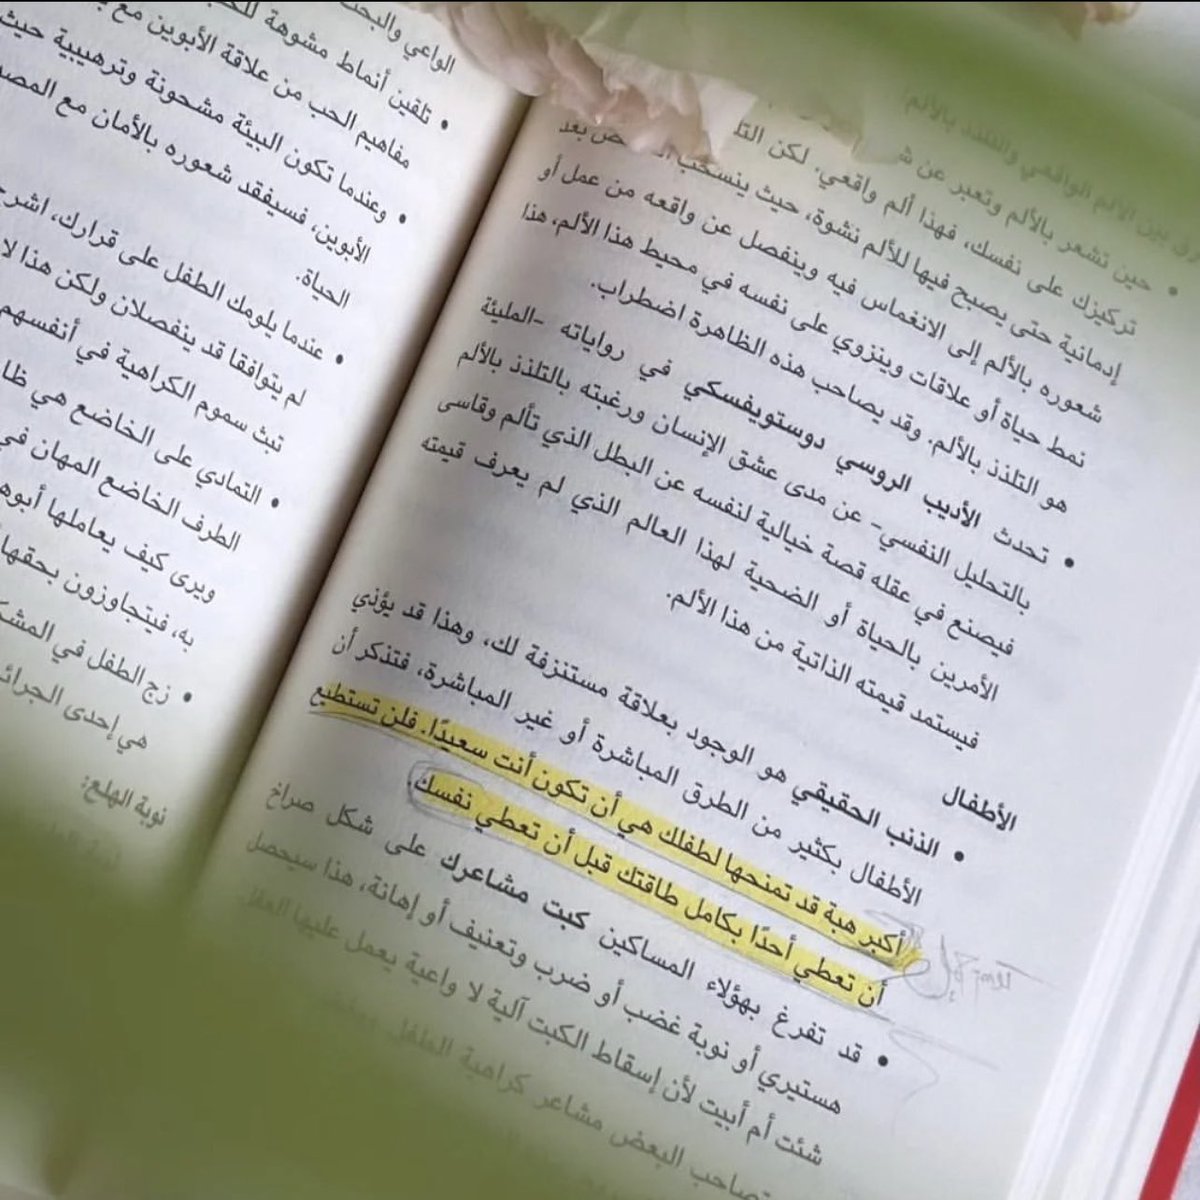 بين الألم الواقعي والتلذذ بالألم
• حين تشعر بالألم وتعبر عن
تركيزك على نفسك، فهذا ألم واقعي. لكن
إدمانية حتى يصبح فيها للألم نشوة، حيث ينسحب بعد
شعوره بالألم إلى الانغماس فيه وينفصل عن واقعه من عمل أو
نمط حياة أو علاقات وينزوي على نفسه في محيط هذا الألم، هذا
هو التلذذ بالألم. وقد يصاحب هذه الظاهرة اضطراب.
• تحدث الأديب الروسي دوستويفسكي في رواياته -المليئة
بالتحليل النفسي- عن مدى عشق الإنسان ورغبته بالتلذذ بالألم
فيصنع في عقله قصة خيالية لنفسه عن البطل الذي تألم وقاسى
الأمرين بالحياة أو الضحية لهذا العالم الذي لم يعرف قيمته
فيستمد قيمته الذاتية من هذا الألم.
الأطفال
• الذنب الحقيقي هو الوجود بعلاقة مستنزفة لك، وهذا قد يؤذي
الأطفال بكثير من الطرق المباشرة أو غير المباشرة، فتذكر أن
أكبر هبة قد تمنحها لطفلك هي أن تكون أنت سعيدًا. فلن تستطيع
أن تعطي أحدًا بكامل طاقتك قبل أن تعطي نفسك.
• قد تفرغ بهؤلاء المساكين كبت مشاعرك على شكل صراخ
هستيري أو نوبة غضب أو ضرب وتعنيف أو إهانة، هذا سيحصل
شئت أم أبيت لأن إسقاط الكبت آلية لا واعية يعمل عليها العقل
البعض مشاعر كراهية الطفل
الواعي
• تلقين أنماط مشوهة
مفاهيم الحب من علاقة الأبوين مع
• وعندما تكون البيئة مشحونة وترهيبية حيث
الأبوين، فسيفقد شعوره بالأمان مع
الحياة.
• عندما يلومك الطفل على قرارك، اشرح
لم يتوافقا قد ينفصلان ولكن هذا لا
تبث سموم الكراهية في أنفسهم
• التمادي على الخاضع هي
الطرف الخاضع المهان في
ويرى كيف يعاملها
به، فيتجاوزون بحقها
• زج الطفل في
هي إحدى
نوبة الهلع: